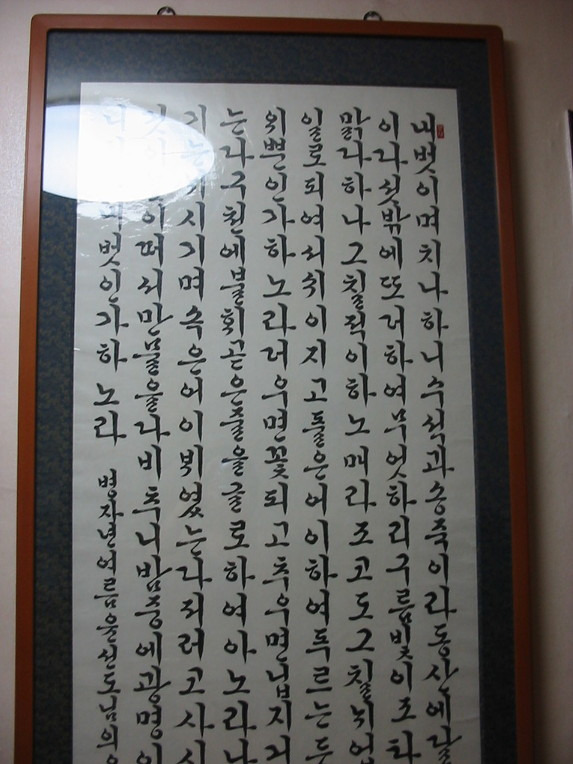 내벗이며치나하니수석과송죽이라동산에달
이다섯밖에또더하여무엇하리구름빛이조타
맑다하나그칠적이하노매라조고도그칠뉘업
일로되여서쉬이지고풀은어이하여푸르는두
외뿐인가하노라더우면꽃되고추우면닙지거
는다구천에불휘곧은줄을글로하여아노라나
기는시기며속은어이뷔였는다저러고사시
이떠서만물을다비추니밤중에광명이
벗인가하노라 병자년여름윤선도님의